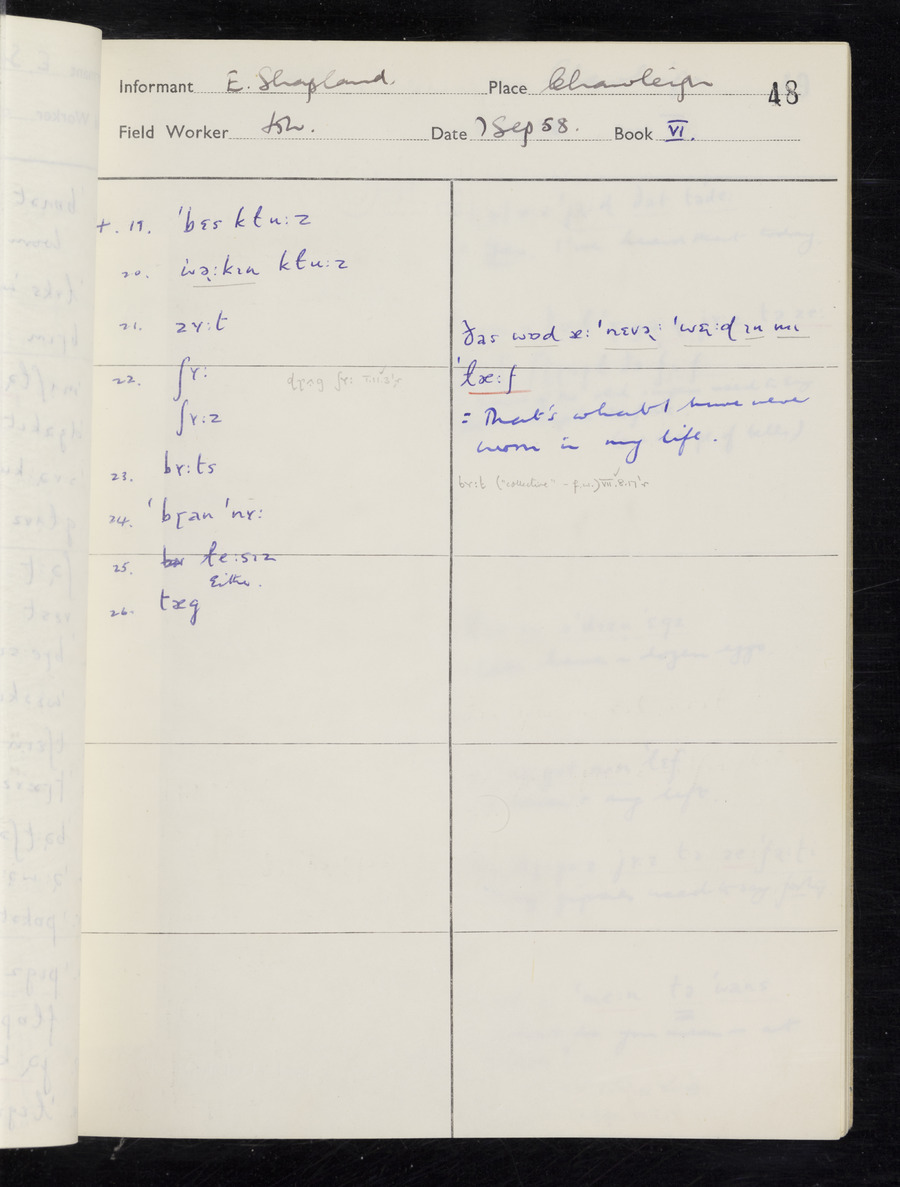 Informant E. Shapland. Place Chawleigh 48
Field Worker Date 7 Sep 58. Book VI.
+. 19. ˈbɛs ktu:z
20. ˈwə̣:kɪn ktu:z
21. zʏ:t
22. ʃʏ:
ʃʏ:z
23. bʏ:ts
24. ˈbɽan ˈnʏ:
25. le:sɪz
Either.
26. tæg
ðas wɒd æ: ˈnɛvə̣: ˈwɛ̣:d ɪn mɪ
ˈlæ:f
= That's what I have never
worn in my life.
bʏ:t ("collective" – f.w.) VII.8.17's